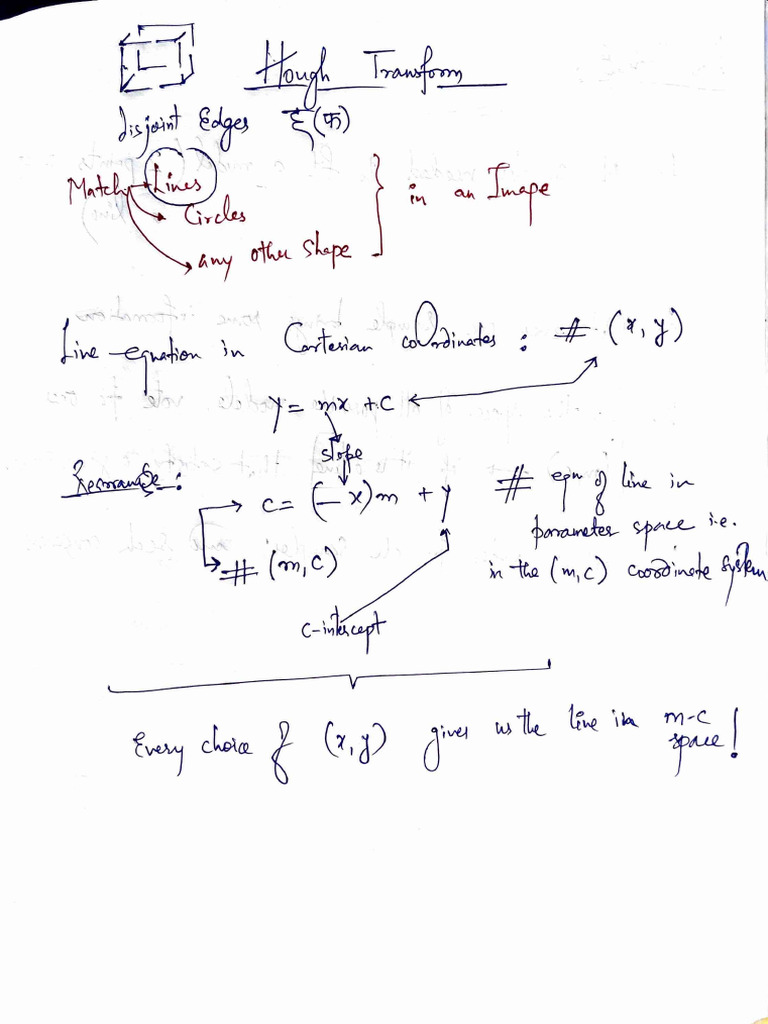 Hough Transform
disjoint Edges ह(फ)
Match → Lines
Circles
any other Shape
in an Image
Line equation in Cartesian coordinates : # (x, y)
y = mx + c
slope
Rearrange :
c = (-x)m + y
# (m, c)
# eqn of line in
parameter space i.e.
in the (m, c) coordinate system
c-intercept
Every choice of (x, y) gives us the line in m-c
space!